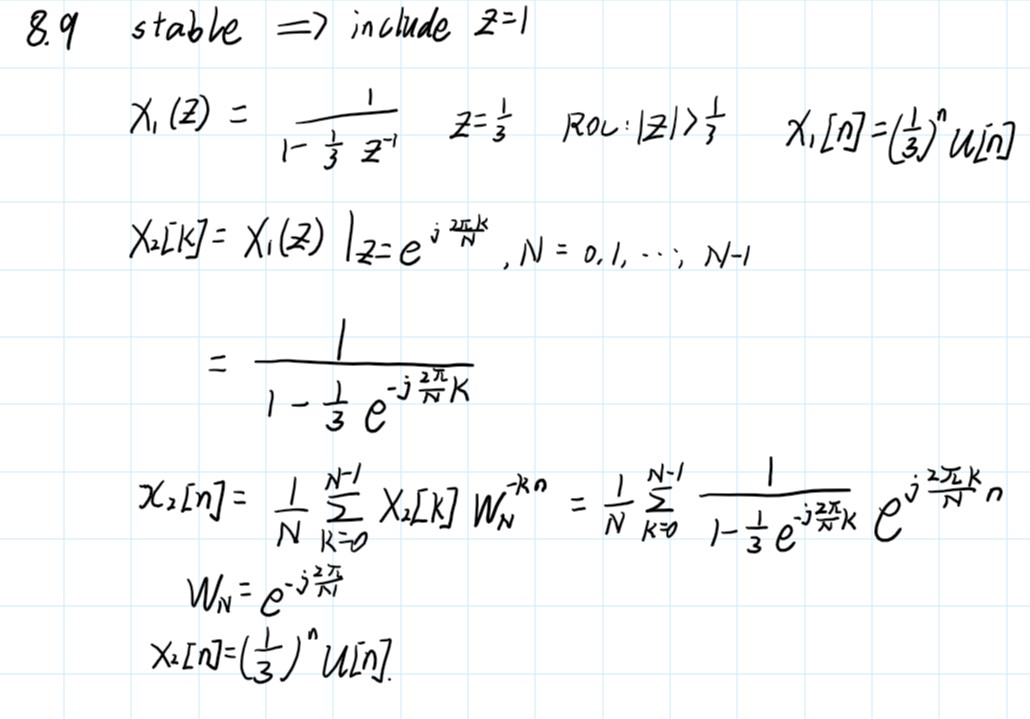 8.9 stable => include z=1
X₁(z) = 1/(1 - 1/3 z⁻¹) z = 1/3 ROC: |z| > 1/3 X₁[n] = (1/3)ⁿ u[n]
X₂[k] = X₁(z) |z = e^(j 2πk/N), N = 0, 1, ⋯, N-1
= 1/(1 - 1/3 e^(-j 2π/N k))
x₂[n] = 1/N Σ_(k=0)^(N-1) X₂[k] W_N^(-kn) = 1/N Σ_(k=0)^(N-1) 1/(1 - 1/3 e^(-j 2π/N k)) e^(j 2πk/N n)
W_N = e^(-j 2π/N)
x₂[n] = (1/3)ⁿ u[n].